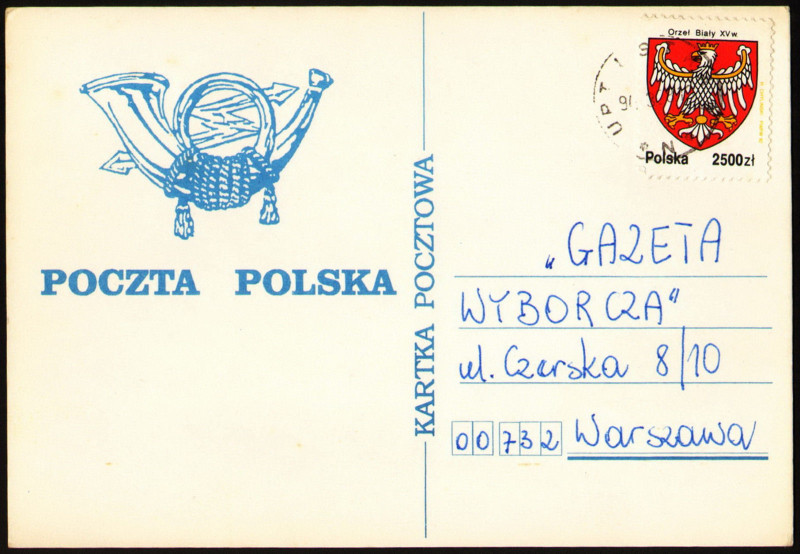 POCZTA POLSKA
KARTKA POCZTOWA
Orzeł Biały XVw.
Polska 2500zł
„GAZETA
WYBORCZA"
ul. Czerska 8/10
00732 Warszawa